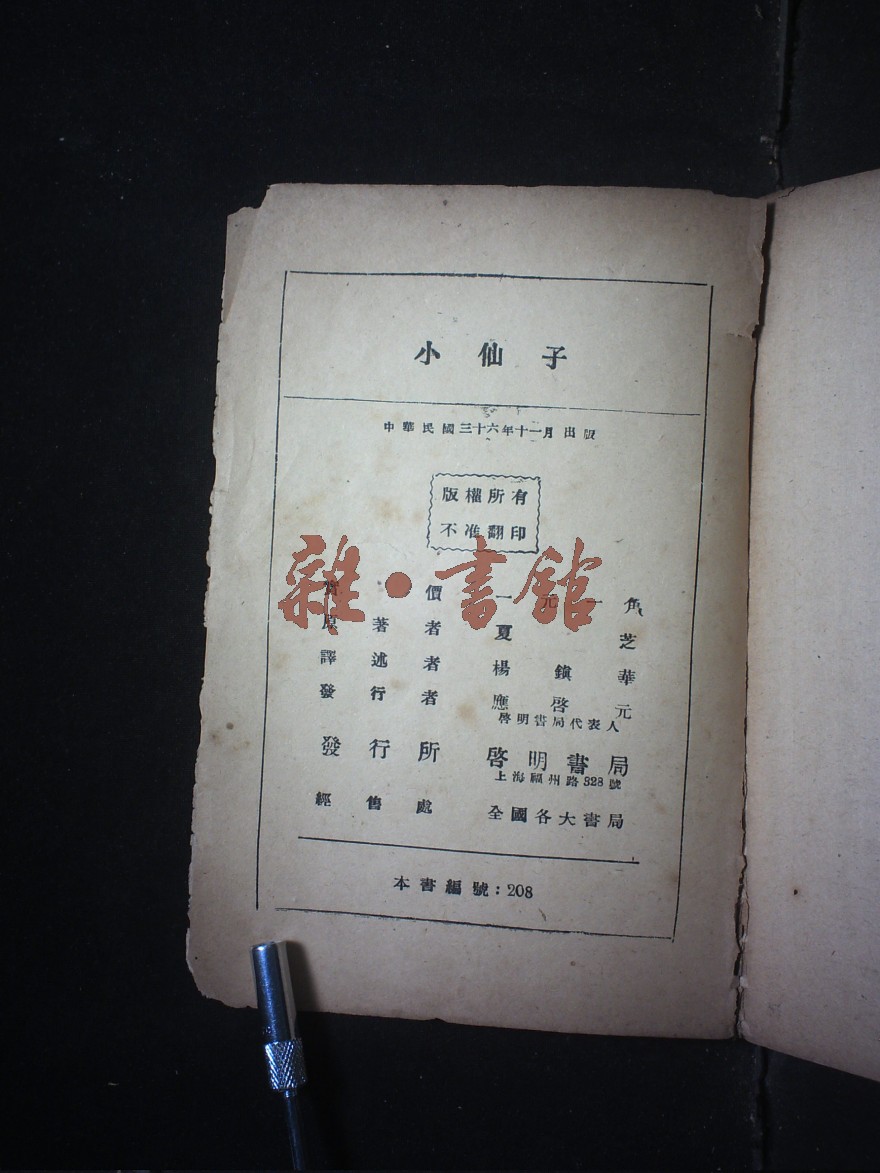 小仙子
中華民國三十六年十一月出版
版權所有
不准翻印
雜·書館
實價 一元一角
原著者 夏芝
譯述者 楊鎮華
發行者 應啓元
啓明書局代表人
發行所 啓明書局
上海福州路328號
經售處 全國各大書局
本書編號：208